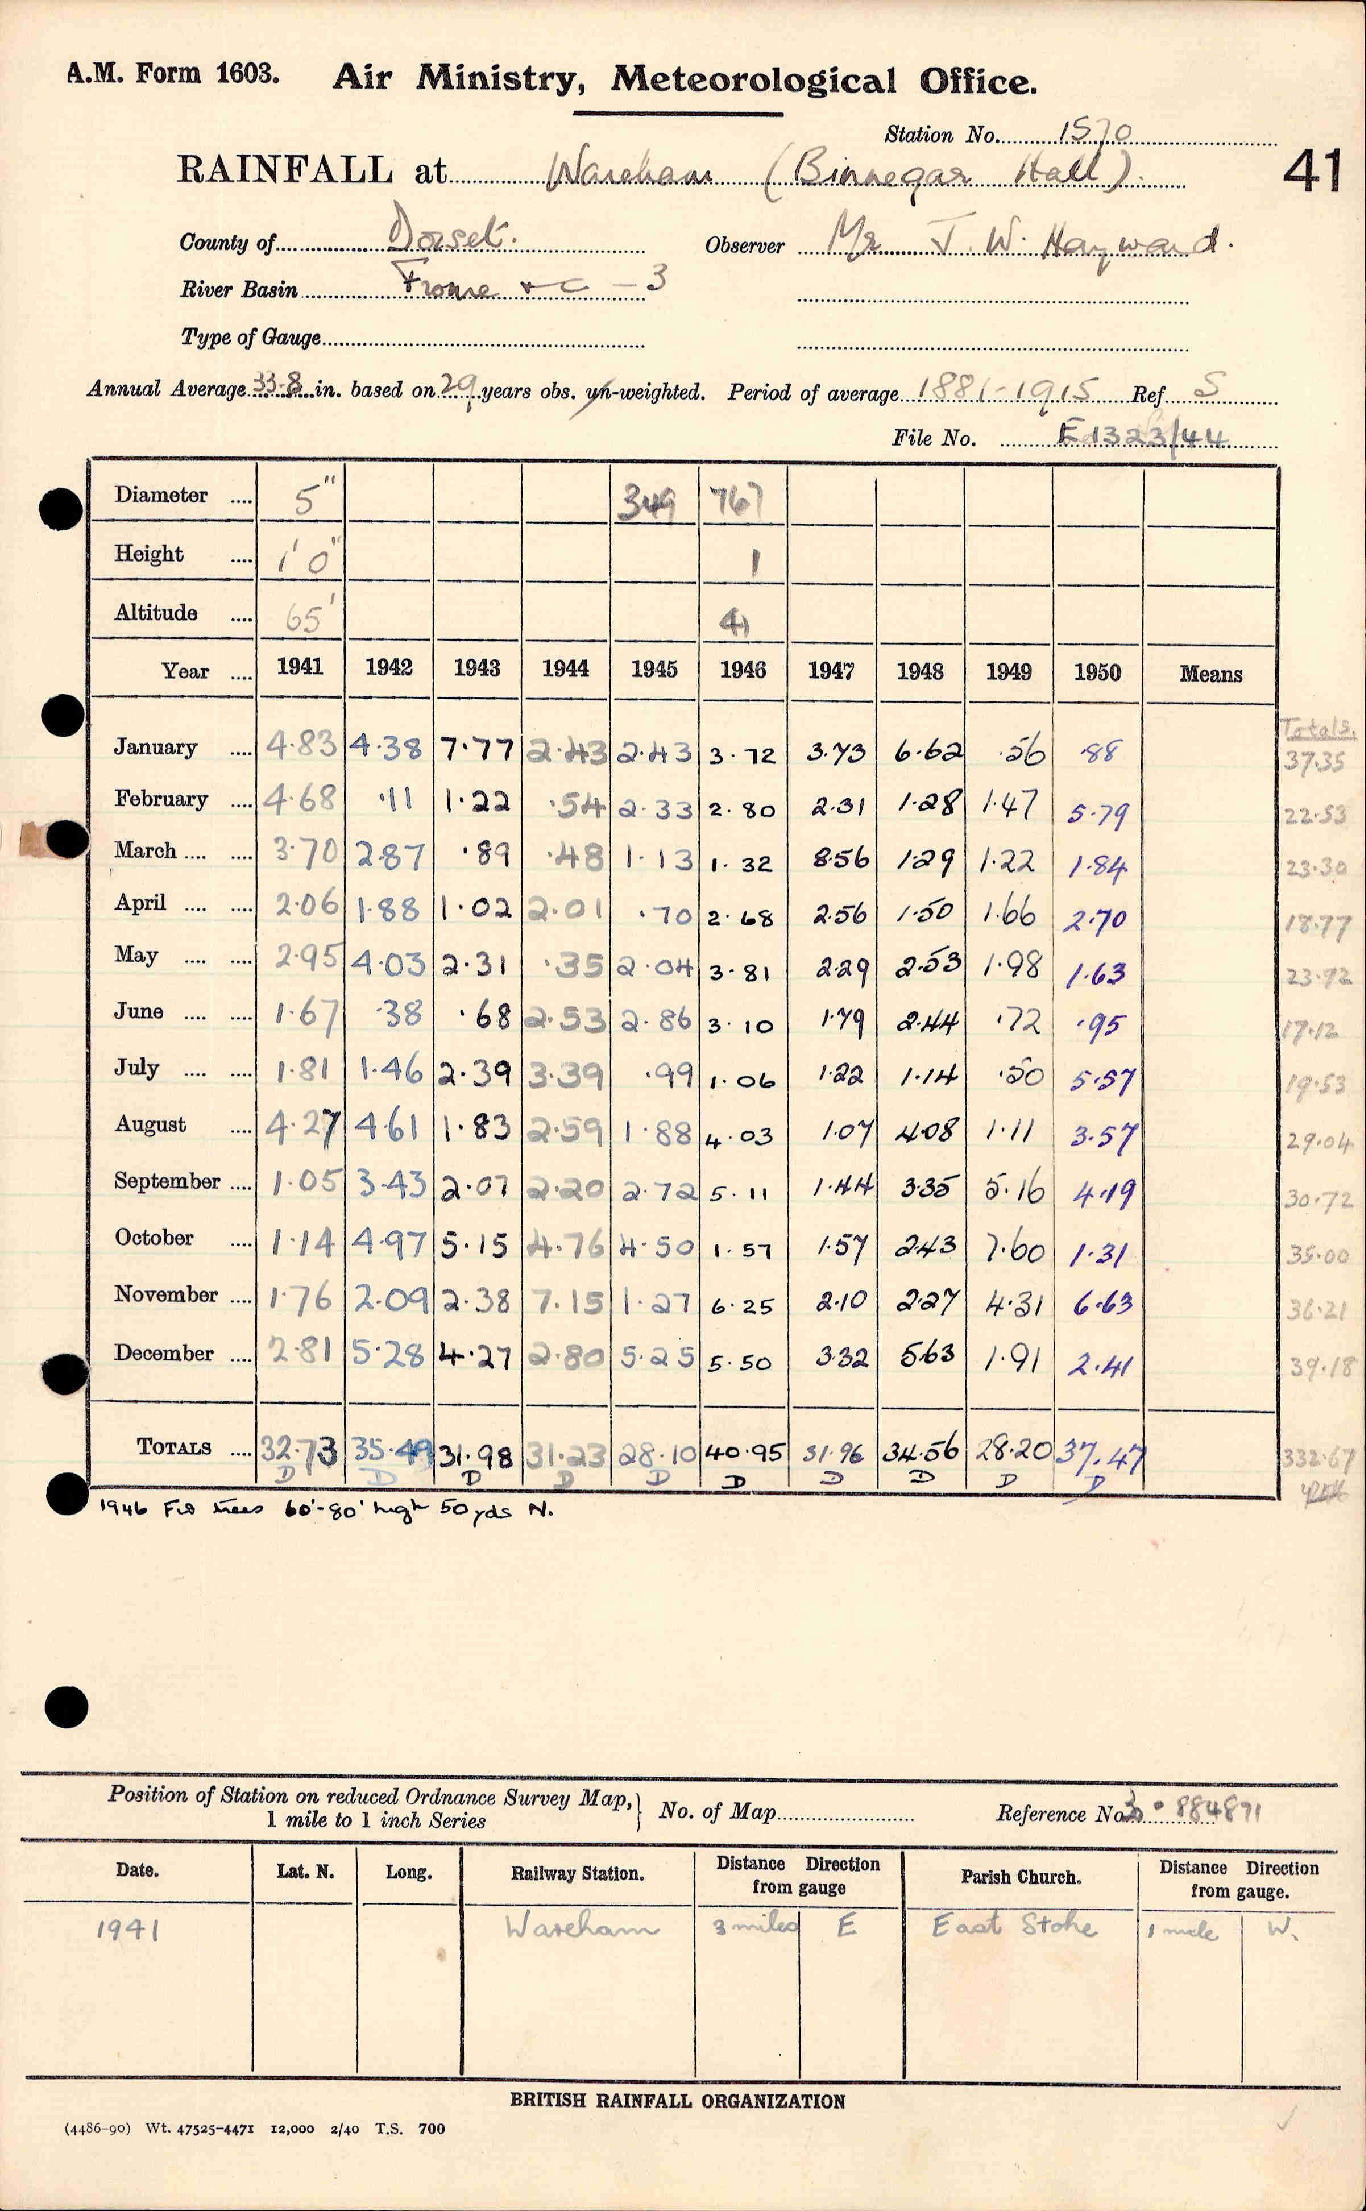 A.M. Form 1603. Air Ministry, Meteorological Office.
Station No. 1570
RAINFALL at Wareham (Binnegar Hall). 41
County of Dorset. Observer Mr J. W. Hayward.
River Basin Frome &c - 3
Type of Gauge
Annual Average 33.8 in. based on 29 years obs. un-weighted. Period of average 1881-1915 Ref S
File No. E1323/44
Diameter .... 5" 349 767
Height .... 1'0" 1
Altitude .... 65' 41
Year .... 1941 1942 1943 1944 1945 1946 1947 1948 1949 1950 Means
Totals.
January .... 4.83 4.38 7.77 2.43 2.43 3.72 3.73 6.62 .56 .88 37.35
February .... 4.68 .11 1.22 .54 2.33 2.80 2.31 1.28 1.47 5.79 22.53
March .... .... 3.70 2.87 .89 .48 1.13 1.32 8.56 1.29 1.22 1.84 23.30
April .... .... 2.06 1.88 1.02 2.01 .70 2.68 2.56 1.50 1.66 2.70 18.77
May .... .... 2.95 4.03 2.31 .35 2.04 3.81 2.29 2.53 1.98 1.63 23.92
June .... .... 1.67 .38 .68 2.53 2.86 3.10 1.79 2.44 .72 .95 17.12
July .... .... 1.81 1.46 2.39 3.39 .99 1.06 1.22 1.14 .50 5.57 19.53
August .... 4.27 4.61 1.83 2.59 1.88 4.03 1.07 4.08 1.11 3.57 29.04
September .... 1.05 3.43 2.07 2.20 2.72 5.11 1.44 3.35 5.16 4.19 30.72
October .... 1.14 4.97 5.15 4.76 4.50 1.57 1.57 2.43 7.60 1.31 35.00
November .... 1.76 2.09 2.38 7.15 1.27 6.25 2.10 2.27 4.31 6.63 36.21
December .... 2.81 5.28 4.27 2.80 5.25 5.50 3.32 5.63 1.91 2.41 39.18
TOTALS .... 32.73 35.49 31.98 31.23 28.10 40.95 31.96 34.56 28.20 37.47 332.67
D D D D D D D D D D
1946 Fir trees 60'-80' high 50 yds N.
Position of Station on reduced Ordnance Survey Map, 1 mile to 1 inch Series } No. of Map Reference No. 884871
Date. Lat. N. Long. Railway Station. Distance Direction from gauge Parish Church. Distance Direction from gauge.
1941 Wareham 3 miles E East Stoke 1 mile W.
BRITISH RAINFALL ORGANIZATION
(4486-90) Wt. 47525-4471 12,000 2/40 T.S. 700